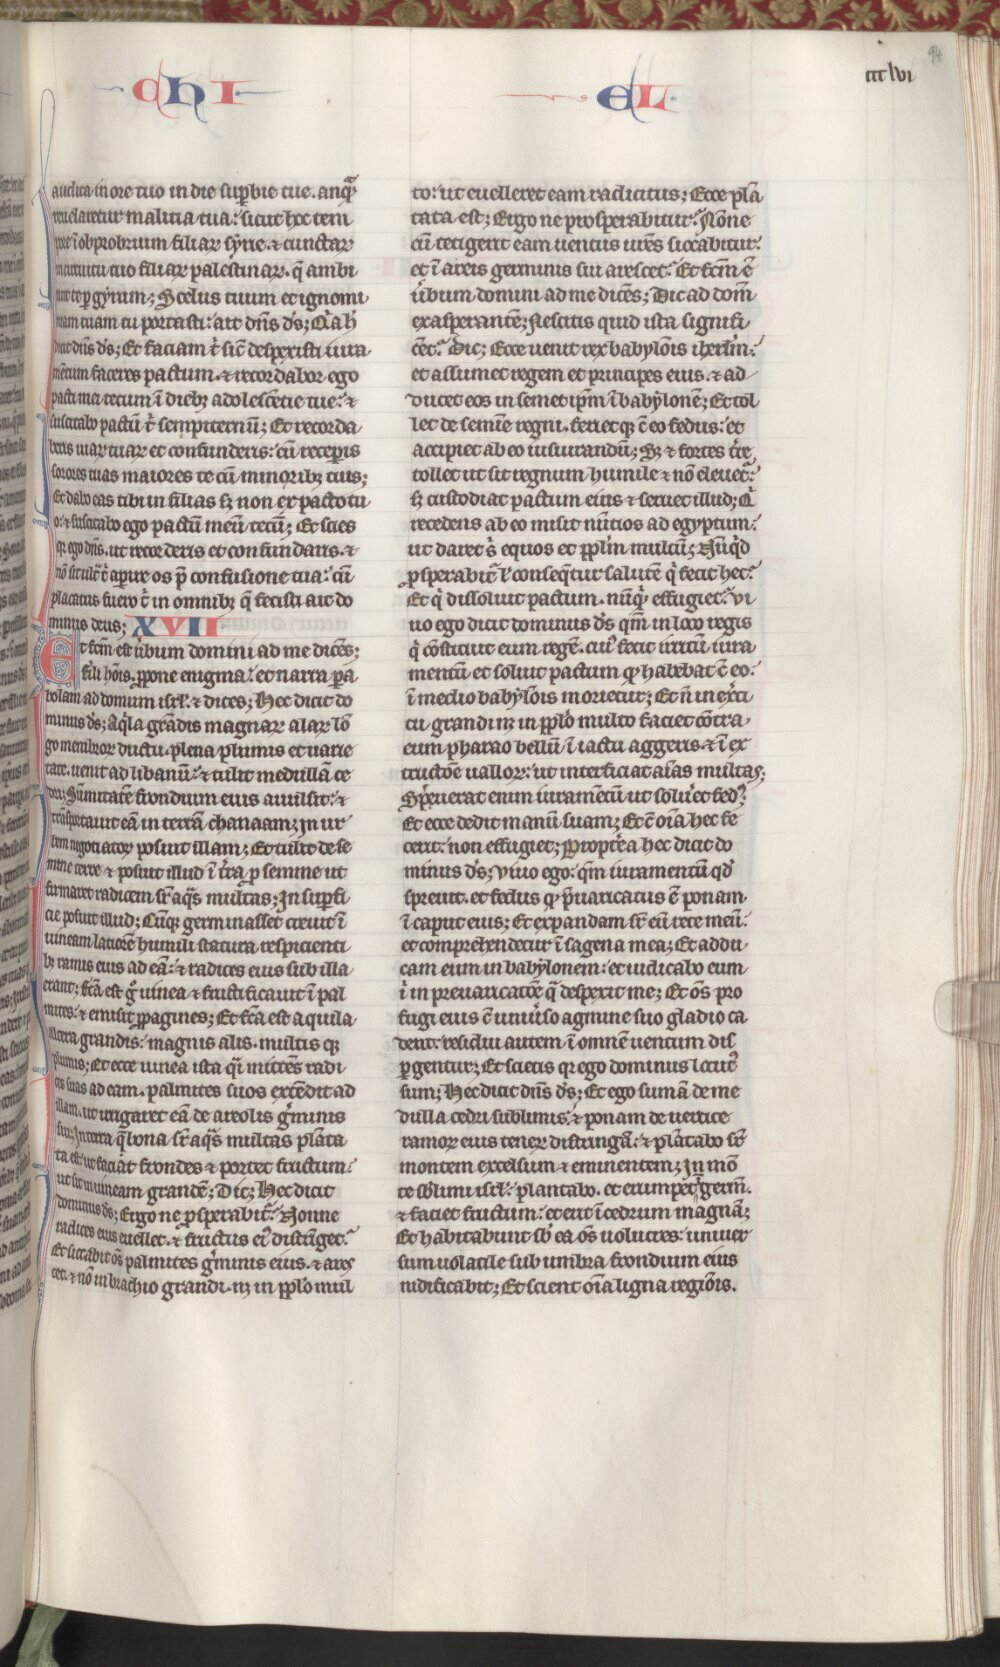 CHI
EL
ccclvi
94
audita in ore tuo in die suꝑbie tue. anq̃ꝫ
reuelaretur malicia tua: sicut hoc tem
pore ĩ obprobrium filiaꝝ syrie. ⁊ cunctaꝝ
in circuitu tuo filiaꝝ palestinaꝝ. q̃ ambi
unt te ꝑ gyrum; Scelus tuum et ignomi
niam tuam tu portasti: ait dñs ds̃; Q̃ia h̃
dicit dñs ds̃; Et faciam t̃ sic̃ despexisti iura
mẽtum faceres pactum. ⁊ recordabor ego
pacti mei tecum ĩ diebꝫ adolescẽtie tue: ⁊
suscitabo pactũ t̃ sempiternũ; Et recorda
beris uiaꝝ tuaꝝ et confunderis: cũ receperis
sorores tuas maiores te cũ minoribꝫ tuis;
Et dabo eas tibi in filias sꝫ non ex pacto tu
o: ⁊ suscitabo ego pactũ meũ tecũ; Et scies
qꝫ ego dñs. ut recorderis et confundaris. ⁊
nõ sit ult̃ t̃ aperire os p̃ confusione tua: cũ
placatus fuero t̃ in omnibꝫ q̃ fecisti ait do
minus deus; XVII
Et fc̃m est ũbum domini ad me dicẽs;
fili hõis. ꝓpone enigma: et narra pa
bolam ad domum isrl̃. ⁊ dices; Hec dicit do
minus ds̃; Aq̃la grãdis magnaꝝ alaꝝ lõ
go membroꝝ ductu. plena plumis et uarie
tate. uenit ad libanũ: ⁊ tulit medullã ce
dri; Sũmitatẽ frondium eius auulsit: ⁊
trãsportauit eã in terrã chanaam; in ur
bem negotiatoꝝ posuit illam; Et tulit de se
mine terre ⁊ posuit illud ĩ t̃ra ꝑ semine ut
firmaret radicem sr̃ aq̃s multas; In suꝑfi
cie posuit illud; Cũqꝫ germinasset creuit ĩ
uineam latiorẽ humili statura. respicienti
bꝫ ramis eius ad eã: ⁊ radices eius sub illa
erant; fc̃a est g̃ uinea ⁊ fructificauit ĩ pal
mites: ⁊ emisit ꝓpagines; Et fc̃a est aquila
altera grandis: magnis alis. multis qꝫ
plumis; Et ecce uinea ista q̃si mittẽs radi
ces suas ad eam. palmites suos extẽdit ad
illam. ut irrigaret eã de areolis g̃minis
sui; In terra q̃ bona sr̃ aq̃s multas plãta
ta est: ut faciat frondes ⁊ portet fructum:
ut sit in uineam grandẽ; Dic; Hec dicit
dominus ds̃; Ergo ne ꝓsperabit̃: Nonne
radices eius euellet. ⁊ fructus ei᷒ distr̃iget:
Et siccabit os̃ palmites g̃minis eius. ⁊ ares
cet. ⁊ nõ in brachio grandi. nꝫ in ꝓplo mul
to: ut euelleret eam radicitus; Ecce plã
tata est; Ergo ne prosperabitur: Nõne
cũ tetigerit eam uentus urẽs siccabitur:
et ĩ areis germinis sui arescet: Et fc̃m ẽ
ũbum domini ad me dicẽs; Dic ad domũ
exasperantẽ; Nescitis quid ista signifi
cẽt: Dic; Ecce uenit rex babylõis iherl̃m:
et assumet regem et principes eius. ⁊ ad
ducet eos in semet ip̃m ĩ babylonẽ; Et tol
let de semĩe regni. ferietqꝫ c̃ eo fedus: et
accipiet ab eo iusiurandũ; Sꝫ ⁊ fortes t̃re
tollet ut sit regnum humile ⁊ nõ eleuet̃:
sꝫ custodiat pactum eius ⁊ seruet illud; Q̃
recedens ab eo misit nũtios ad egyptum:
ut daret s̃ equos et ꝓpl̃m multũ; Nũq̃d
ꝓsperabit̃ ł conseq̃tur salutẽ q̃ fecit hec:
Et q̃ dissoluit pactum. nũq̃ effugiet: Vi
uo ego dicit dominus ds̃ qm̃ in loco regis
q̃ cõstituit eum regẽ. cui᷒ fecit irritũ iura
mentũ et soluit pactum qꝫ habebat c̃ eo:
ĩ medio babylõis morietur; Et ñ in ex̃ci
tu grandi nꝫ in ꝓpl̃o multo faciet cõtra
eum pharao bellũ: ĩ iactu aggeris. ⁊ ĩ ex
tructõe ualloꝝ: ut interficiat aĩas multas;
Sp̃euerat enim iuramẽtũ ut solũet fed᷒:
Et ecce dedit manũ suam; Et c̃ oĩa hec fe
cerit: non effugiet; Propt̃ea hec dicit do
minus ds̃; Viuo ego: qm̃ iuramentũ qd̃
spreuit. et fedus qꝫ p̃uaricatus ẽ ponam
ĩ caput eius; Et expandam sr̃ eũ rete meũ:
et comprehendetur ĩ sagena mea; Et addu
cam eum in babylonem: et iudicabo eum
ĩ in preuaricatõe q̃ despexit me; Et os̃ pro
fugi eius c̃ uniũso agmine suo gladio ca
dent: residui autem ĩ omnẽ uentum dis
ꝑgentur; Et scietis qꝫ ego dominus locut᷒
sum; Hec dicit dñs ds̃; Et ego sumã de me
dulla cedri sublimis. ⁊ ponam de uertice
ramoꝝ eius teneꝝ distringã: ⁊ plãtabo sr̃
montem excelsum ⁊ eminentem; In mõ
te sb̃limi isrl̃: plantabo. et erumpet germ̃.
⁊ faciet fructum: et erit ĩ cedrum magnã;
Et habitabunt sb̃ ea os̃ uolucres: uniuer
sum uolatile sub umbra frondium eius
nidificabit; Et scient oĩa ligna regiõis.